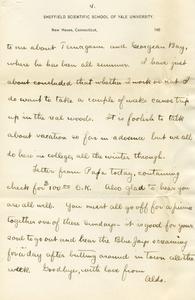 4.
SHEFFIELD SCIENTIFIC SCHOOL OF YALE UNIVERSITY.
New Haven, Connecticut, 190
to me about Temagami and Georgian Bay,
where he has been all summer. I have just
about concluded that whether I work or not I
do want to take a couple of weeks canoe trip
up in the real woods. It is foolish to talk
about vacation so far in advance but we all
do here in college, all the winter through.
Letter from Papa today, containing
check for $ O.K. Also glad to hear you
are all well. You must all go off for a picnic
together one of these Sundays - it is good for your
soul to get out and hear the Blue Jays screaming
for a day after butting around in town all the
week. Goodbye, with love from
Aldo.